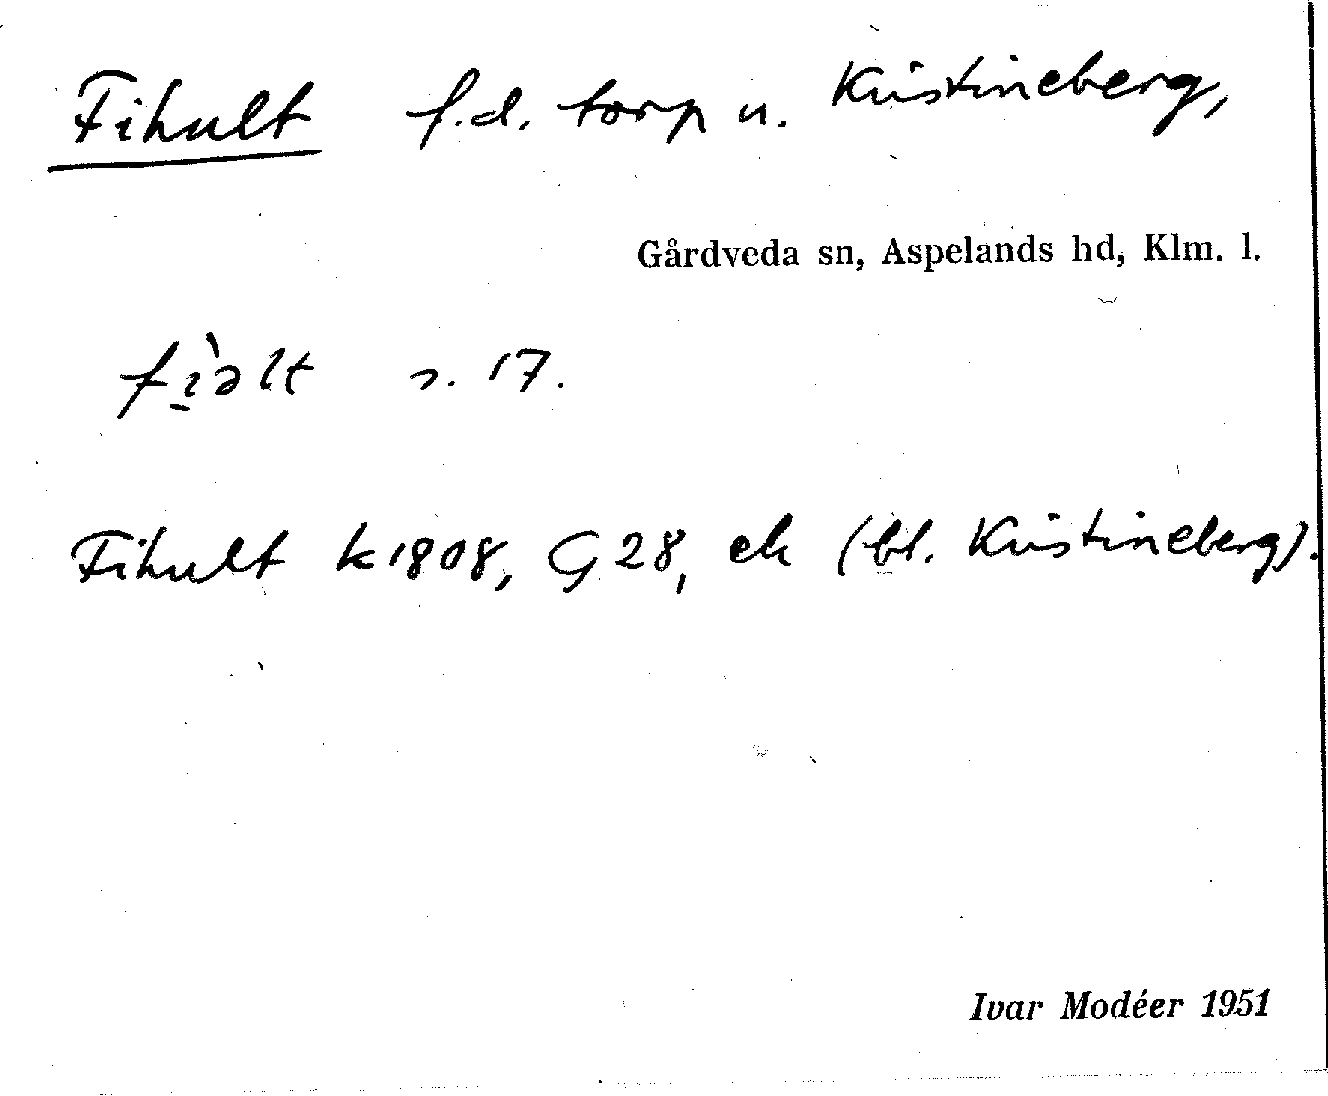 Fihult f.d. torp u. Kristineberg,
Gårdveda sn, Aspelands hd, Klm. l.
fì̱əlt s. 17.
Fihult k 1808, G 28, ek (bl. Kristineberg).
Ivar Modéer 1951